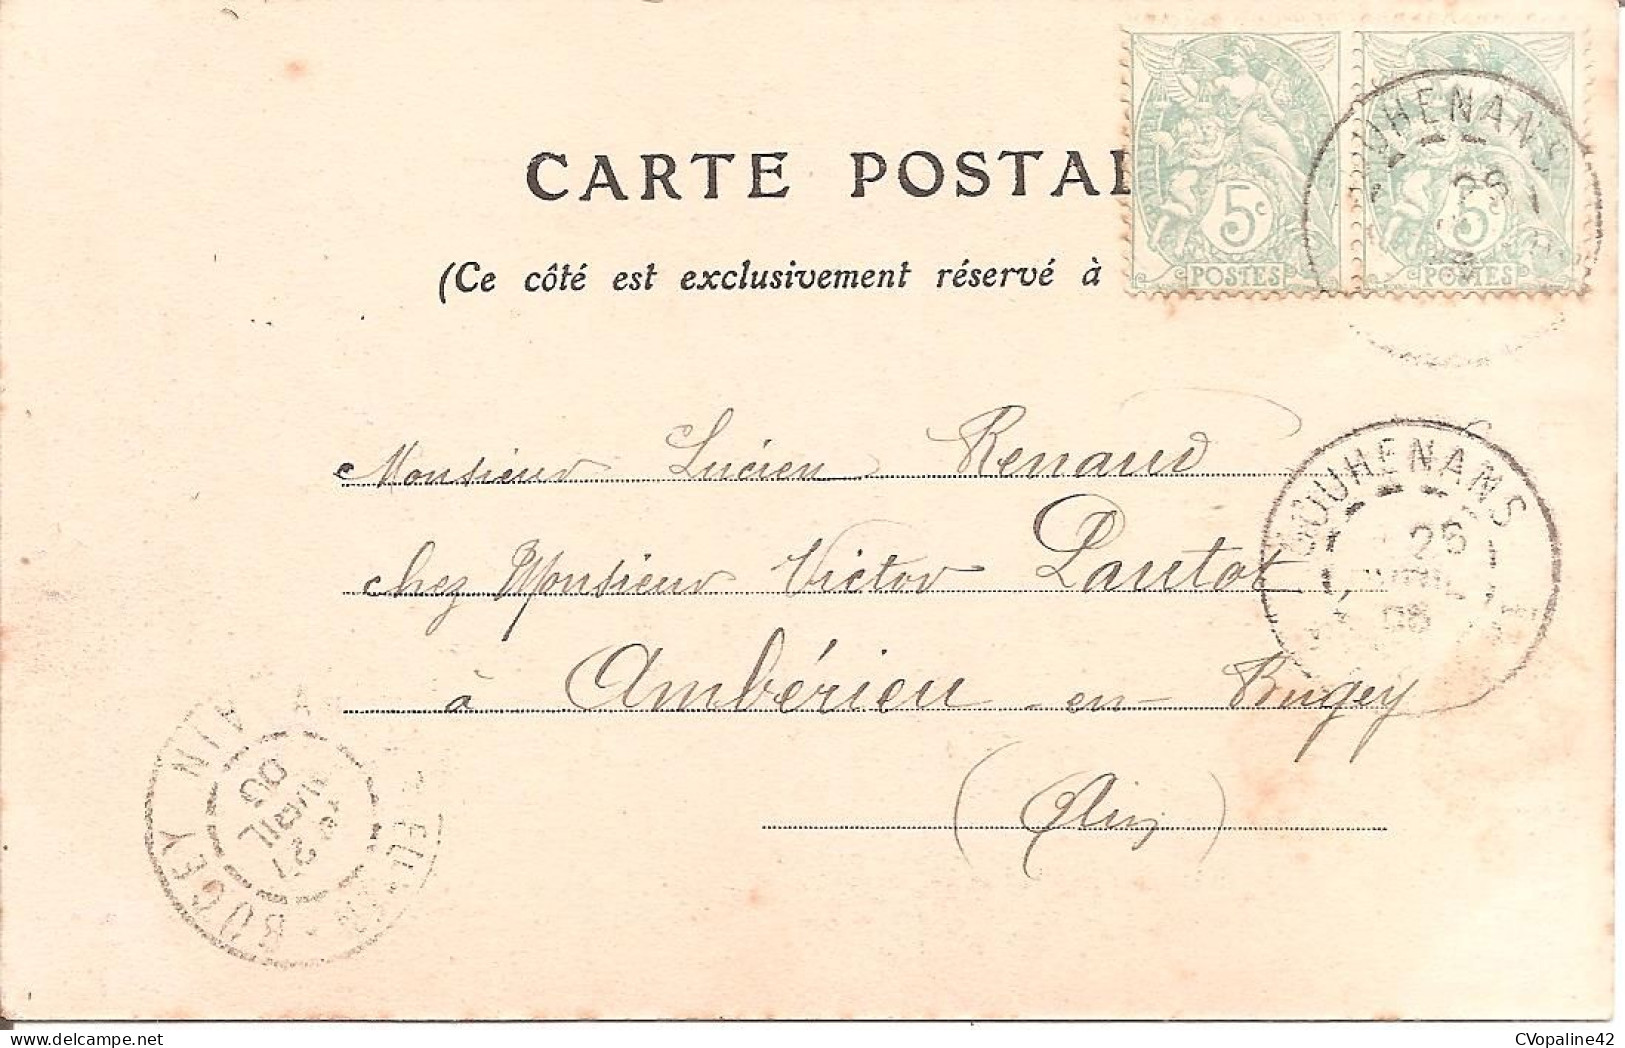 CARTE POSTAL
(Ce côté est exclusivement réservé à
5c
POSTES
5c
POSTES
OUHENANS
26
Monsieur Lucien Renaud
chez Monsieur Victor Lautot
à Ambérieu-en-Bugey
(Ain)
LOUHENANS
26
AVRIL
BUGEY AIN
27
AVRIL
CVopaline42